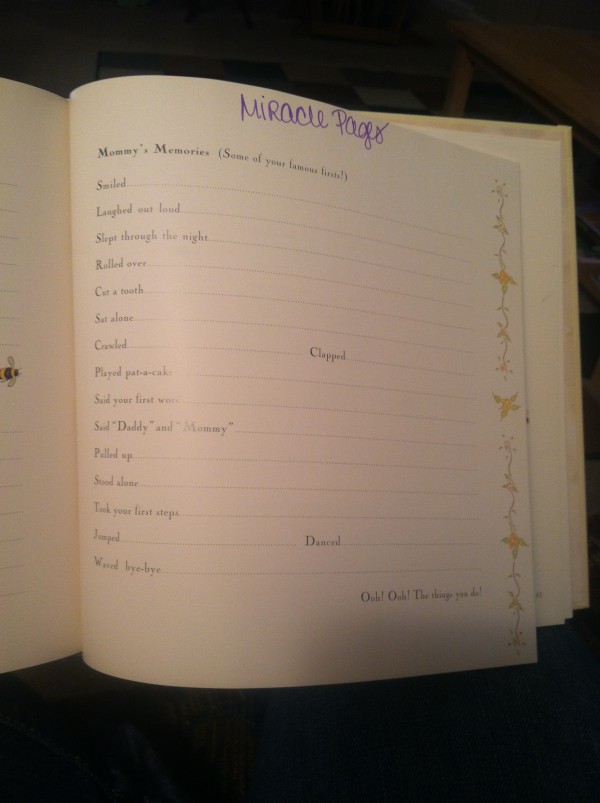 Miracle Pages
Mommy's Memories (Some of your famous firsts!)
Smiled
Laughed out loud
Slept through the night
Rolled over
Cut a tooth
Sat alone
Crawled Clapped
Played pat-a-cake
Said your first word
Said "Daddy" and "Mommy"
Pulled up
Stood alone
Took your first steps
Jumped Danced
Waved bye-bye
Ooh! Ooh! The things you do!